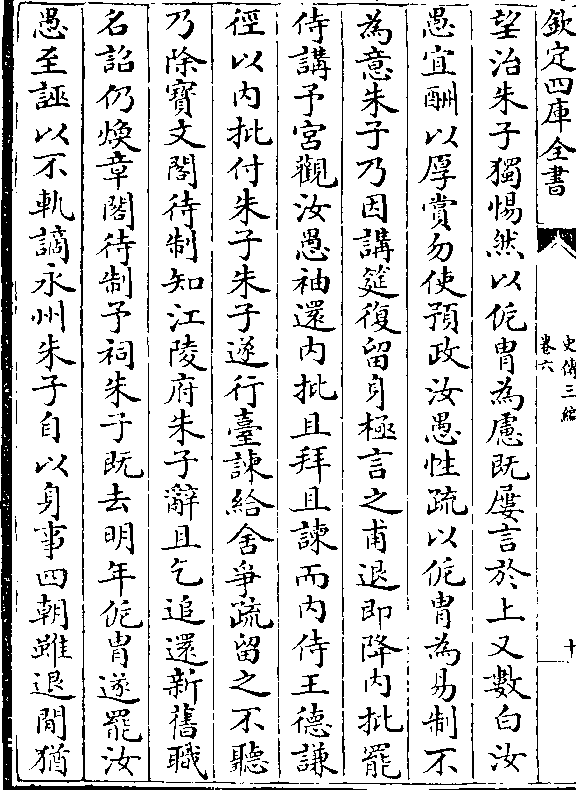 欽定四庫全書
史傳三編
卷六
十
望治朱子獨惕然以侂胄為慮既屢言於上又數白汝
愚宜酬以厚賞勿使預政汝愚性疏以侂胄為易制不
為意朱子乃因講筵復留身極言之甫退即降内批罷
侍講予宮觀汝愚袖還内批且拜且諫而内侍王德謙
徑以内批付朱子朱子遂行臺諫給舍爭疏留之不聽
乃除寶文閣待制知江陵府朱子辭且乞追還新舊職
名詔仍煥章閣待制予祠朱子既去明年侂胄遂罷汝
愚至誣以不軌謫永州朱子自以身事四朝雖退閒猶